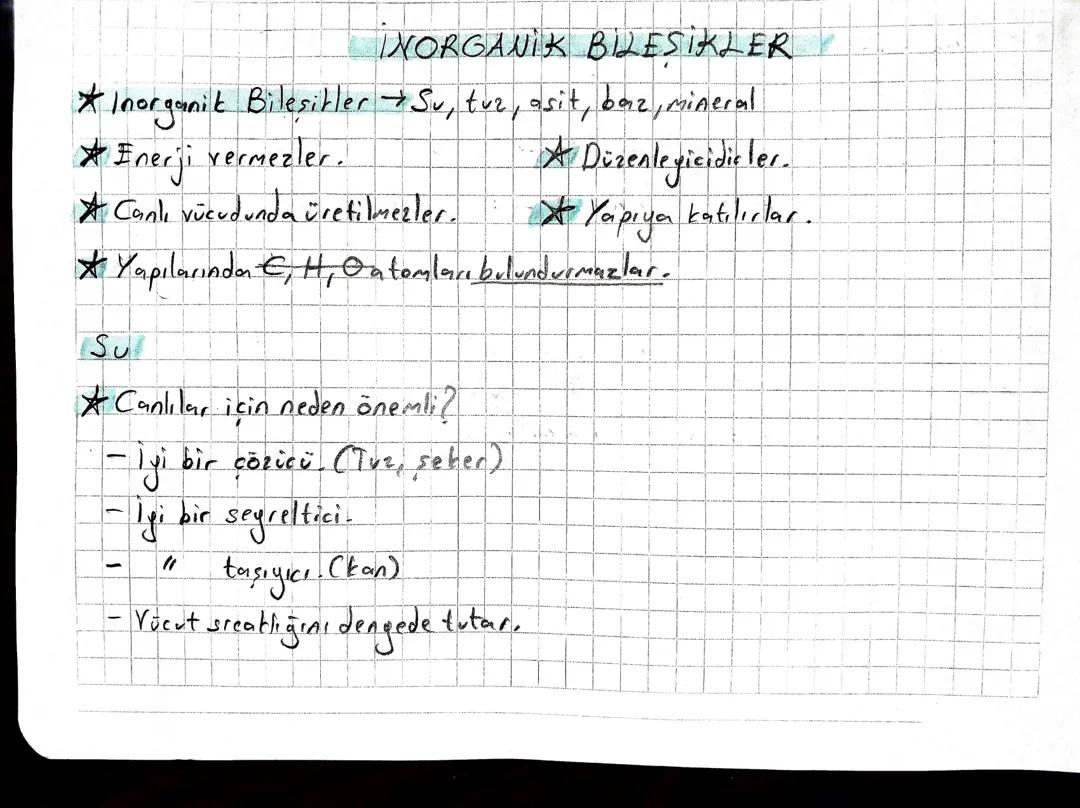 İNORGANİK BİLEŞİKLER
★ Inorganik Bileşikler → Su, tuz, asit, baz, mineral
★ Enerji vermezler. ★ Düzenleyicidirler.
★ Canlı vücudunda üretilmezler. ★ Yapıya katılırlar.
★ Yapılarında C, H, O atomları bulundurmazlar.
Su
★ Canlılar için neden önemli?
- İyi bir çözücü. (Tuz, şeker)
- İyi bir seyreltici.
- " taşıyıcı. (kan)
- Vücut sıcaklığını dengede tutar.